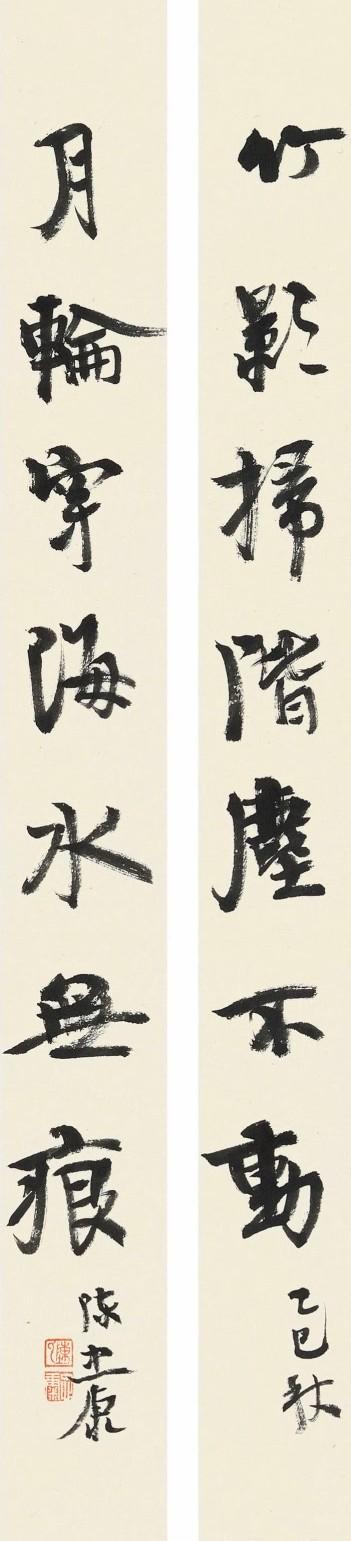 竹影掃階塵不動
乙巳秋
月輪穿海水無痕
陳士康